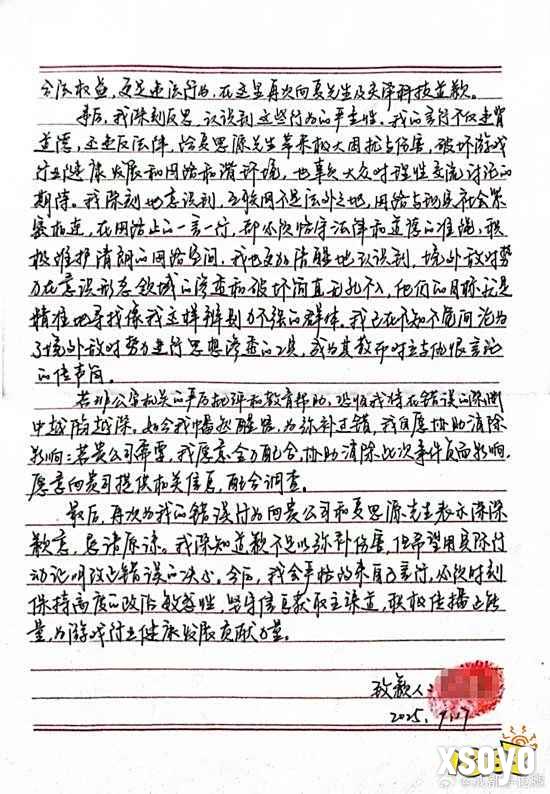 合法权益，更是违法行为，在这里再次向夏先生及灵泽科技道歉。
事后，我深刻反思，认识到这些行为的严重性。我的言行不仅违背
道德，还违反法律，给夏思源先生带来极大困扰与伤害，破坏游戏
行业健康发展和网络和谐环境，也辜负大众对理性交流讨论的
期待。我深刻地意识到，互联网不是法外之地，网络与现实社会紧
密相连，在网络上的一言一行，都必须恪守法律和道德的准绳，积
极维护清朗的网络空间。我也更加清醒地认识到，境外敌对势
力在意识形态领域的渗透和破坏简直无孔不入，他们的目标就是
精准地寻找像我这样辨别力不强的群体。我已在不知不觉间沦为
了境外敌对势力进行思想渗透的工具，成为其散布对立与仇恨言论
的传声筒。
若非公安机关的严厉批评和教育帮助，恐怕我将在错误的深渊
中越陷越深。如今我幡然醒悟，为弥补过错，我自愿协助消除
影响：若贵公司需要，我愿意全力配合，协助消除此次事件负面影响，
愿意向贵司提供相关信息，配合调查。
最后，再次为我的错误行为向贵公司和夏思源先生表示深深
歉意，恳请原谅。我深知道歉不足以弥补伤害，但希望用实际行
动证明改正错误的决心。今后，我会严格约束自己言行，必须时刻
保持高度的政治敏感性，坚守信息获取主渠道，积极传播正能
量，为游戏行业健康发展贡献力量。
致歉人：
2025.9.17
XSOYO